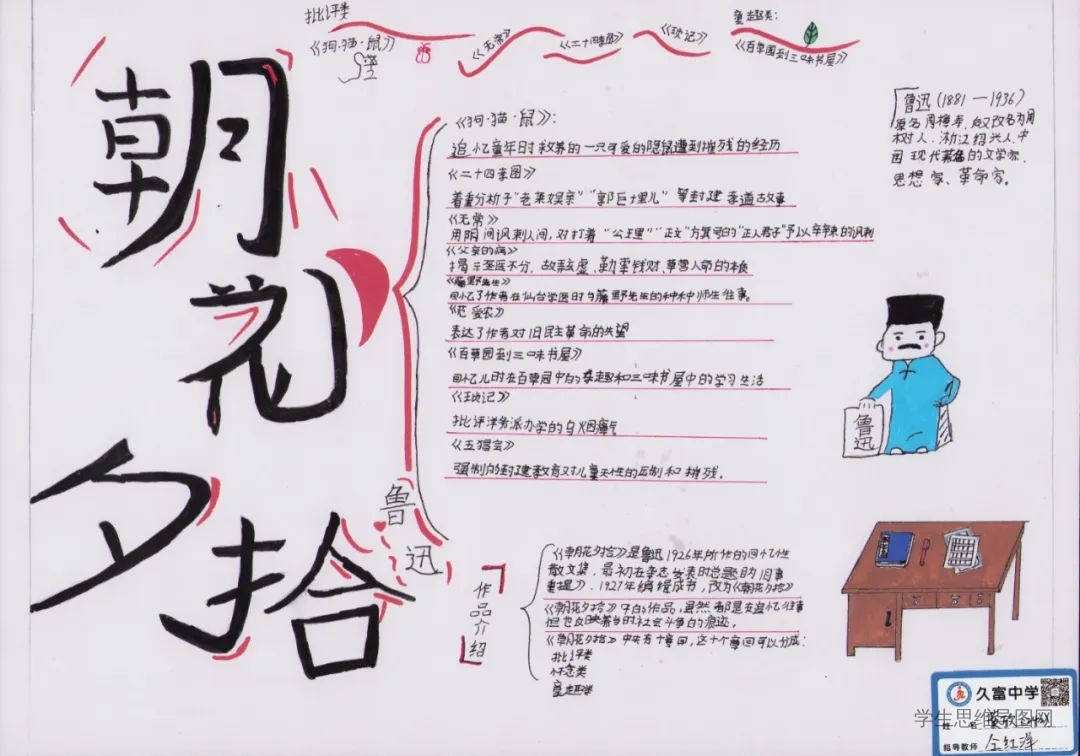 批评类
《狗·猫·鼠》
《无常》
《二十四孝图》
《琐记》
童趣类:
《百草园到三味书屋》
朝花夕拾
鲁迅
鲁迅(1881—1936)
原名周樟寿,后改名为周
树人,浙江绍兴人,中
国现代著名的文学家、
思想家、革命家。
《狗·猫·鼠》:
追忆童年时救养的一只可爱的隐鼠遭到摧残的经历
《二十四孝图》
着重分析了“老莱娱亲”“郭巨埋儿”等封建孝道故事
《无常》
用阴间讽刺人间,对打着“公理”“正义”旗号的“正人君子”予以辛辣的讽刺
《父亲的病》
揭示巫医不分、故弄玄虚、勒索钱财、草菅人命的本质
《藤野先生》
回忆了作者在仙台学医时与藤野先生的种种师生往事。
《范爱农》
表达了作者对旧民主革命的失望
《百草园到三味书屋》
回忆儿时在百草园中的乐趣和三味书屋中的学习生活
《琐记》
批评洋务派办学的乌烟瘴气
《五猖会》
强制的封建教育对儿童天性的压制和摧残。
鲁迅
作品介绍
《朝花夕拾》是鲁迅1926年所作的回忆性
散文集,最初在杂志发表时总题的旧事
重提》.1927年编辑成书,改为《朝花夕拾》
《朝花夕拾》中的作品,虽然都是在追忆往事
但也反映着当时社会斗争的痕迹。
《朝花夕拾》中共有十章回,这十个章回可以分成:
批评类
怀念类
童趣类
久富中学
学生思维导图网
姓名
指导教师 仝红洋